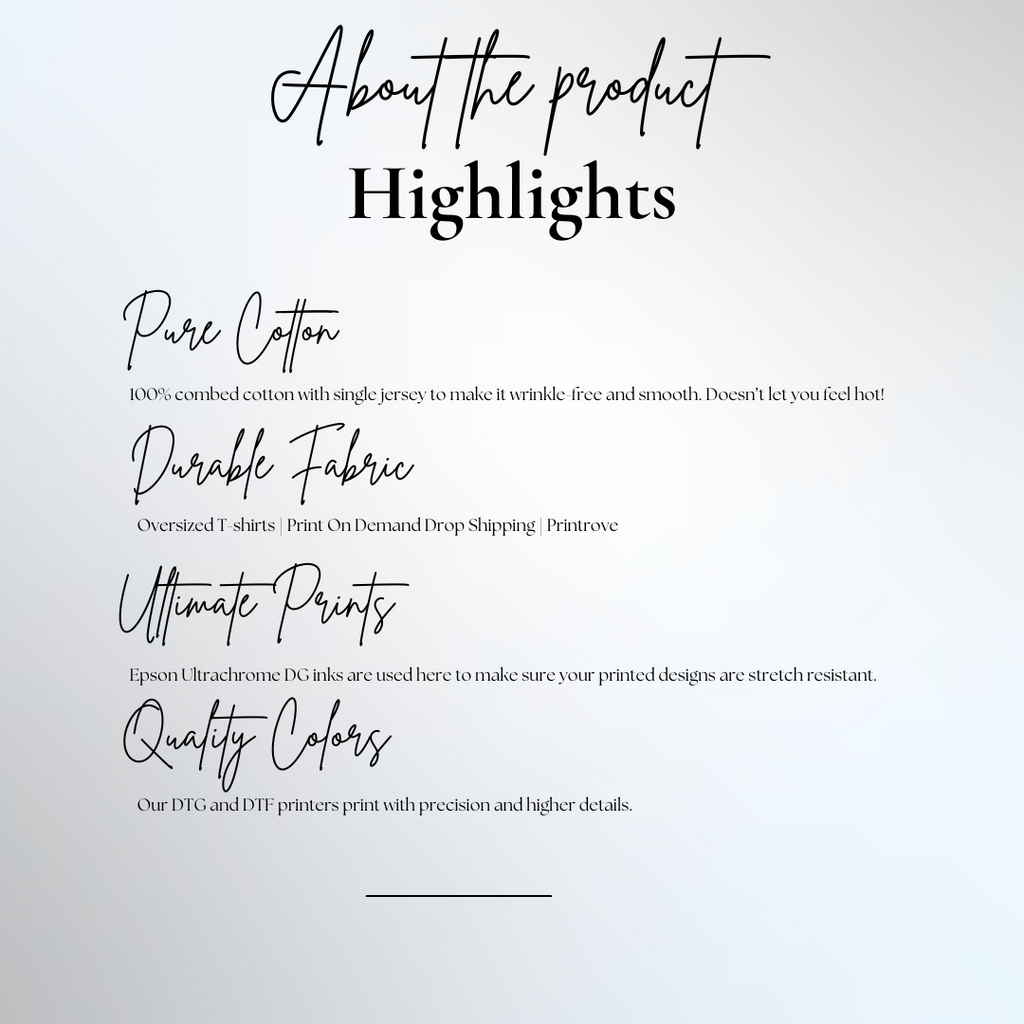 About the product
Highlights
Pure Cotton
100% combed cotton with single jersey to make it wrinkle-free and smooth. Doesn't let you feel hot!
Durable Fabric
Oversized T-shirts | Print On Demand Drop Shipping | Printrove
Ultimate Prints
Epson Ultrachrome DG inks are used here to make sure your printed designs are stretch resistant.
Quality Colors
Our DTG and DTF printers print with precision and higher details.